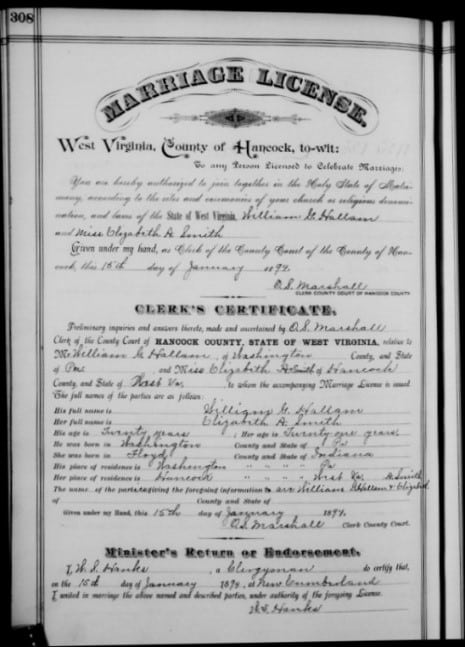 308
MARRIAGE LICENSE.
West Virginia, County of Hancock, to-wit:
To any Person Licensed to Celebrate Marriages:
You are hereby authorized to join together in the Holy State of Matri-
mony, according to the rites and ceremonies of your church or religious denomi-
nation, and laws of the State of West Virginia, William G. Hallam
and Miss Elizabeth A Smith
Given under my hand, as Clerk of the County Court of the County of Han-
cock, this 15th day of January 1894.
O.S. Marshall
CLERK COUNTY COURT OF HANCOCK COUNTY
CLERK'S CERTIFICATE.
Preliminary inquiries and answers thereto, made and ascertained by O.S. Marshall
Clerk of the County Court of HANCOCK COUNTY, STATE OF WEST VIRGINIA, relative to
Mr. William G. Hallam, of Washington County, and State
of Pa and Miss Elizabeth A Smith of Hancock
County, and State of West Va, to whom the accompanying Marriage License is issued.
The full names of the parties are as follows:
His full name is William G. Hallam
Her full name is Elizabeth A. Smith
His age is Twenty years ; Her age is Twenty one years.
He was born in Washington County and State of Pa
She was born in Floyd County and State of Indiana
His place of residence is Washington " " " " Pa.
Her place of residence is Hancock " " " " West Va. A. Smith
The name of the parties giving the foregoing information is are William G. Hallam & Elizabeth
of County and State of
Given under my Hand, this 15th day of January 1894.
O.S. Marshall Clerk County Court.
Minister's Return or Endorsement.
I, W. S. Hanks, a Clergyman do certify that,
on the 15th day of January 1894, at New Cumberland
I united in marriage the above named and described parties, under authority of the foregoing License.
W.S. Hanks